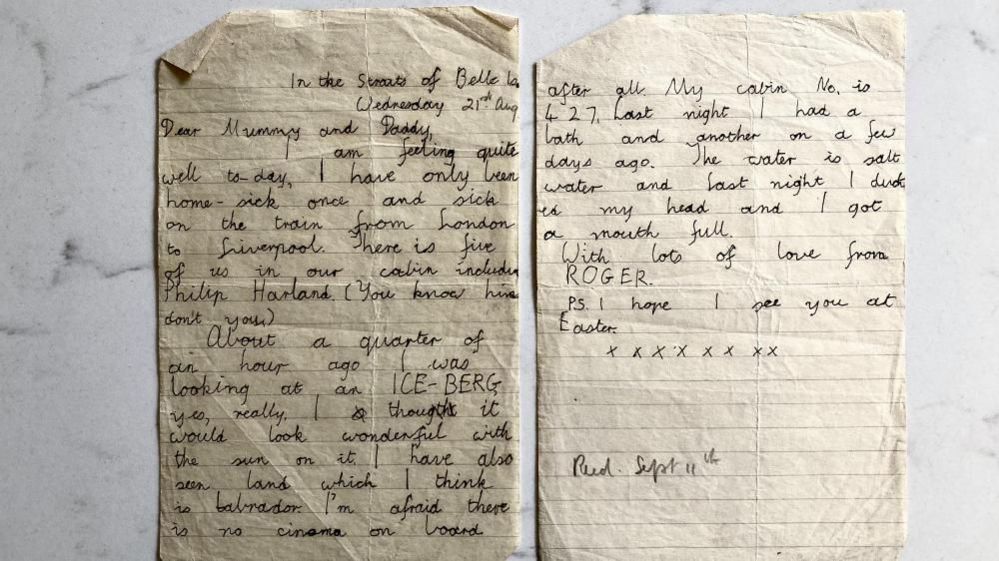 In the Straits of Belle Is
Wednesday 21st Aug
Dear Mummy and Daddy,
I am feeling quite
well to-day, I have only been
home-sick once and sick
on the train from London
to Liverpool. There is five
of us in our cabin includin
Philip Harland. (You know him
don't you,)
About a quarter of
an hour ago I was
looking at an ICE-BERG,
yes, really, I thought it
would look wonderful with
the sun on it. I have also
seen land which I think
is Labrador. I'm afraid there
is no cinema on board
after all. My cabin No, is
427, Last night I had a
bath and another on a few
days ago. The water is salt
water and last night I duck
ed my head and I got
a mouth full.
With lots of love from
ROGER.
PS. I hope I see you at
Easter.
x x x x x x x x
Recd. Sept 11th